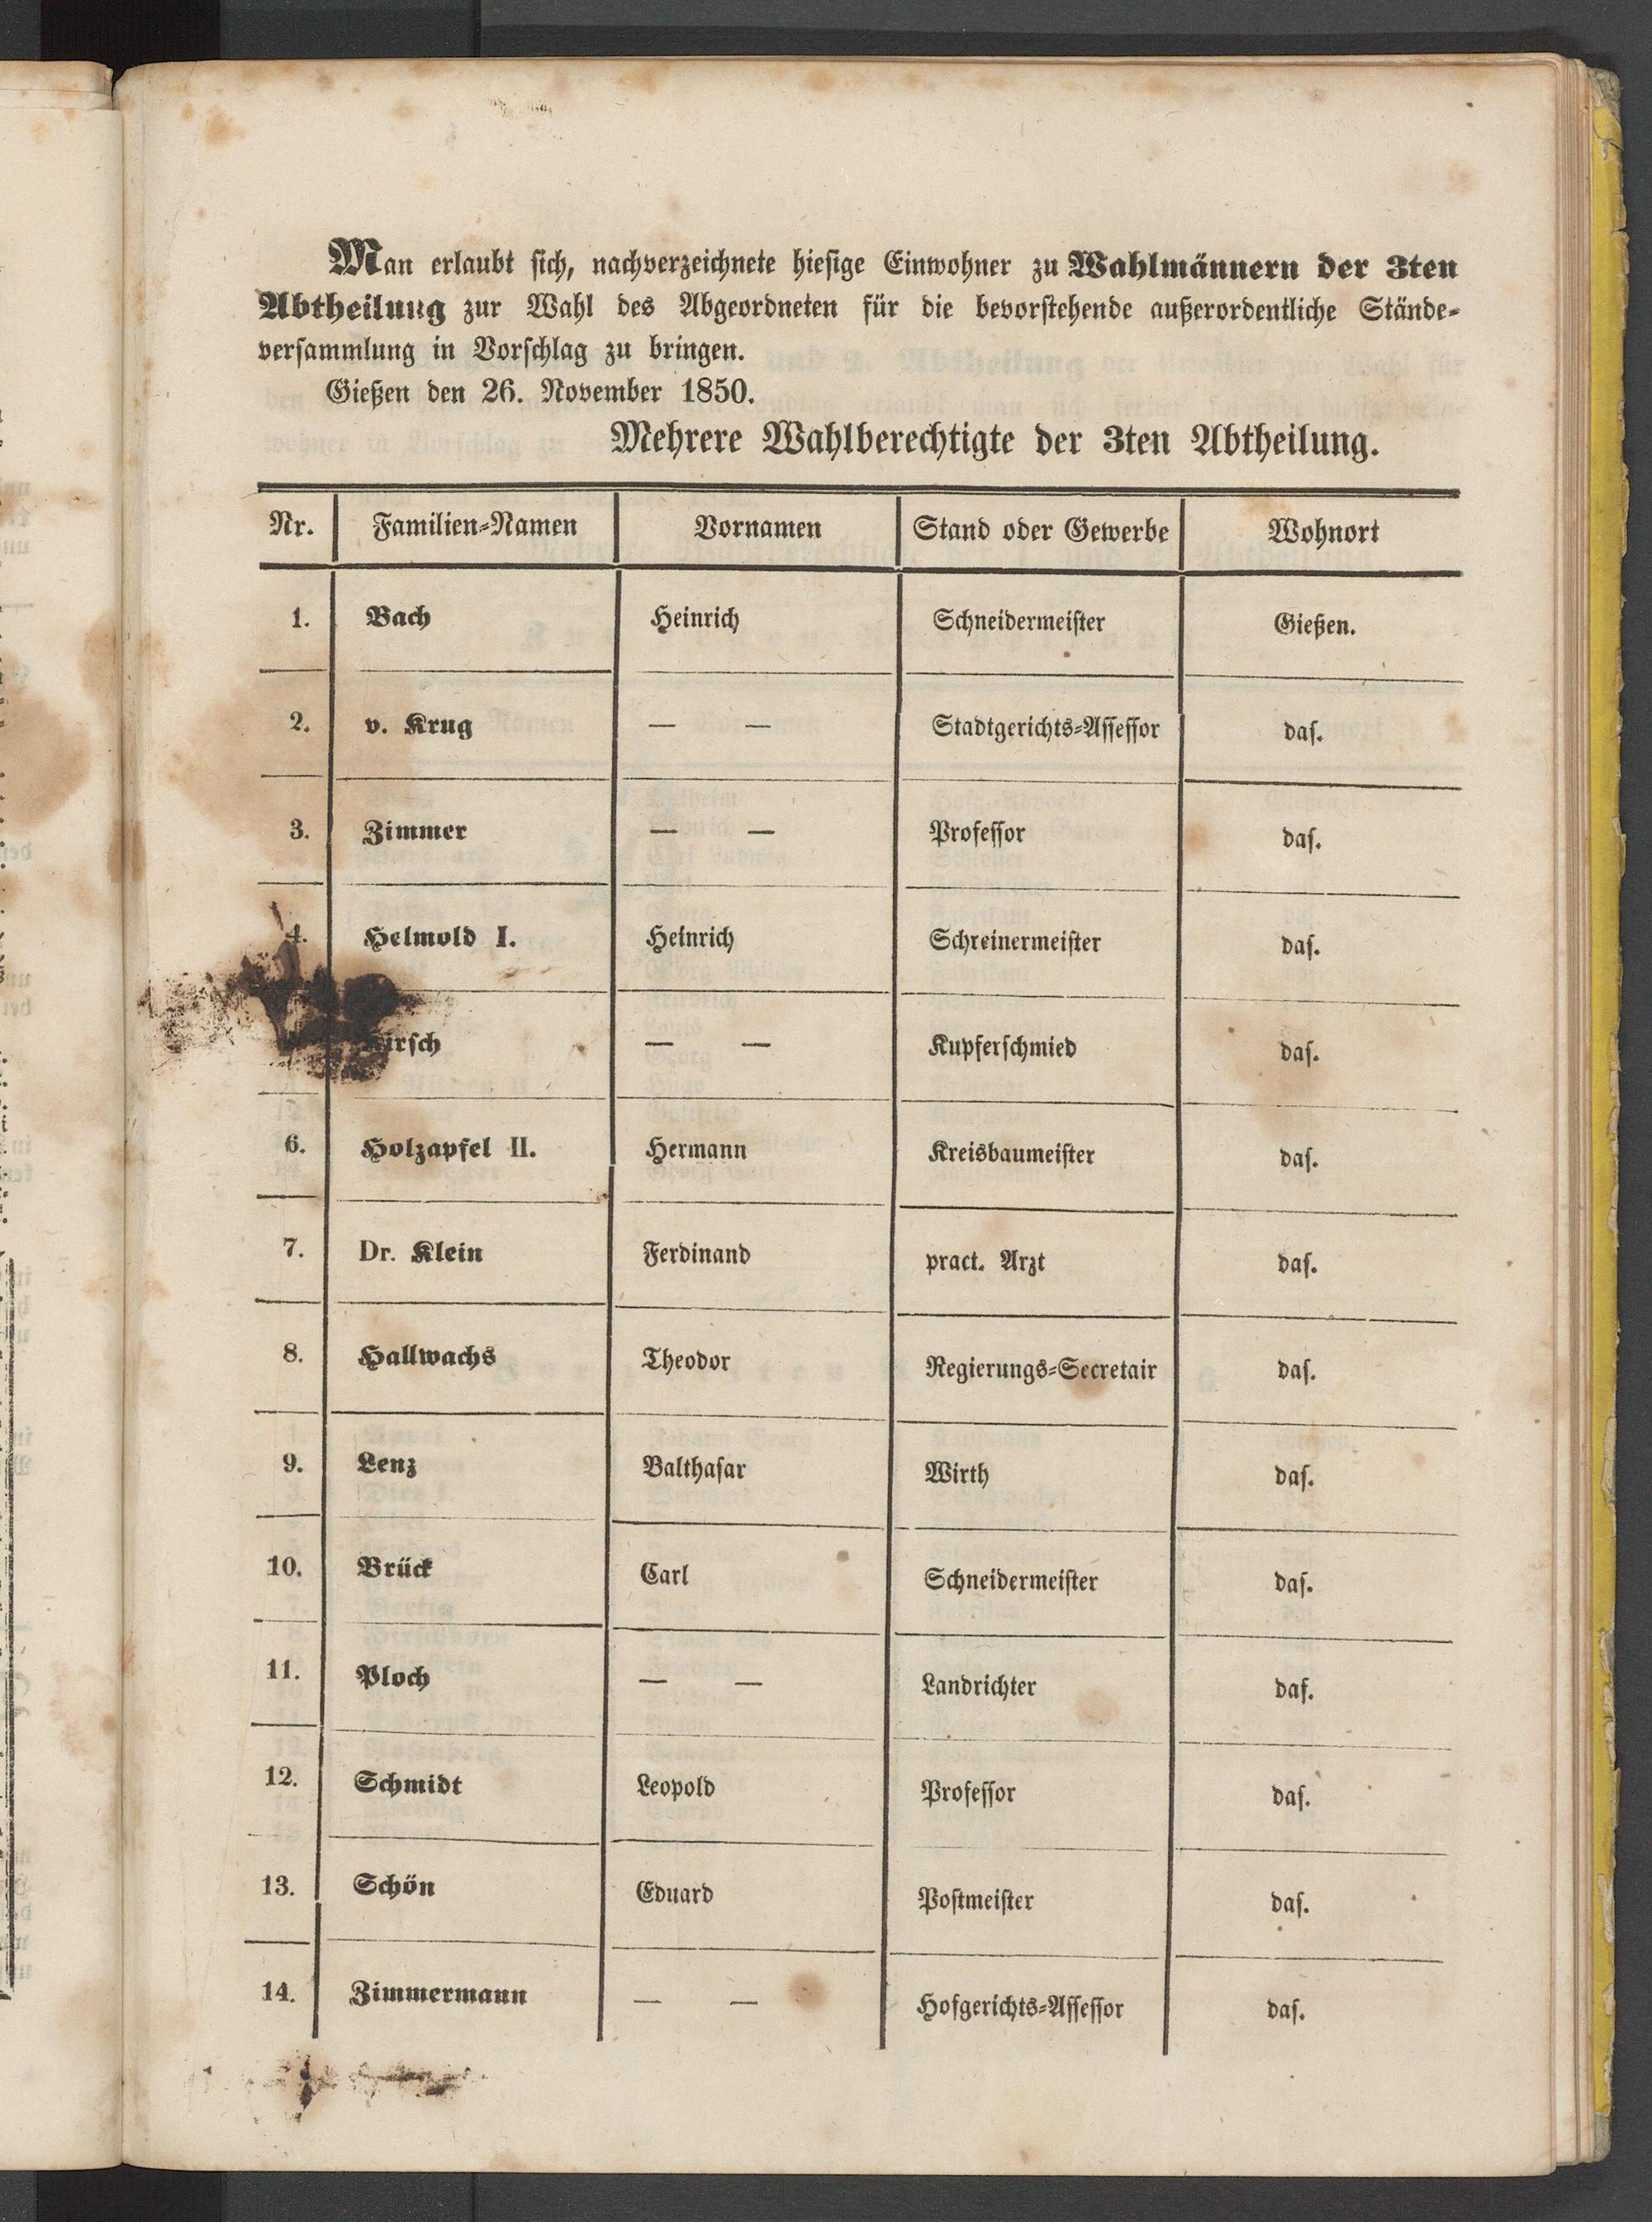 Man erlaubt sich, nachverzeichnete hiesige Einwohner zu Wahlmännern der 3ten
Abtheilung zur Wahl des Abgeordneten für die bevorstehende außerordentliche Stände-
versammlung in Vorschlag zu bringen.
Gießen den 26. November 1850.
Mehrere Wahlberechtigte der 3ten Abtheilung.
Nr. Familien-Namen Vornamen Stand oder Gewerbe Wohnort
1. Bach Heinrich Schneidermeister Gießen.
2. v. Krug — — Stadtgerichts-Assessor das.
3. Zimmer — — Professor das.
4. Helmold I. Heinrich Schreinermeister das.
— — Kupferschmied das.
6. Holzapfel II. Hermann Kreisbaumeister das.
7. Dr. Klein Ferdinand pract. Arzt das.
8. Hallwachs Theodor Regierungs-Secretair das.
9. Lenz Balthasar Wirth das.
10. Brück Carl Schneidermeister das.
11. Ploch — — Landrichter das.
12. Schmidt Leopold Professor das.
13. Schön Eduard Postmeister das.
14. Zimmermann — — Hofgerichts-Assessor das.